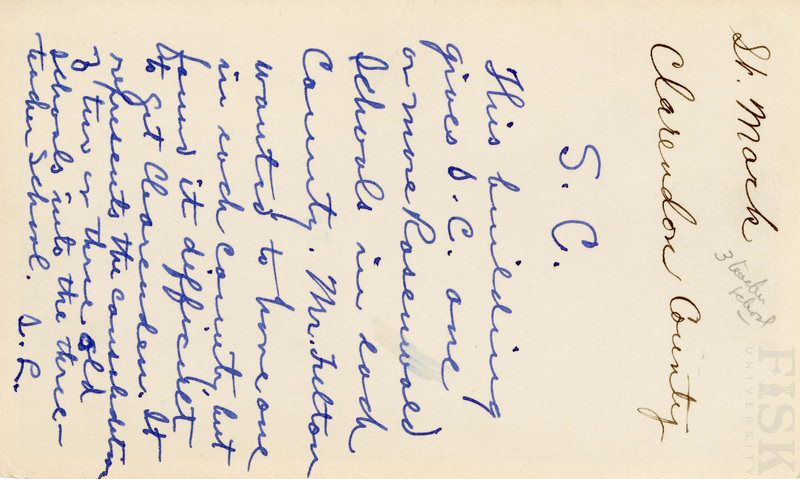 St. Mark
3 teacher
school
Clarendon County
S. C.
This building
gives S. C. one
or more Rosenwald
Schools in each
County. Mr. Felton
wanted to have one
in each County, but
found it difficult
to get Clarendon. It
represents the consolidation
of two or three old
schools into the three-
teacher School. S. L.
FISK
UNIVERSITY